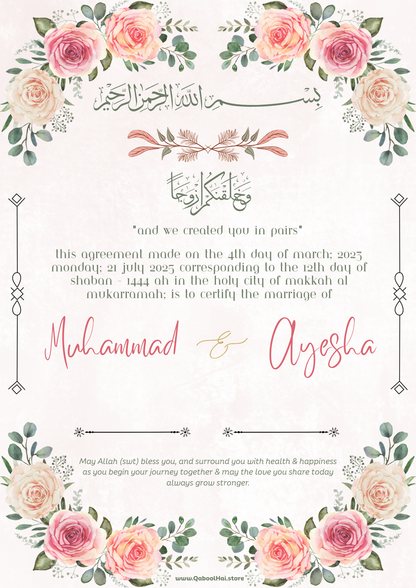 بسم الله الرحمن الرحيم
وخلقنكم أزوجا
"and we created you in pairs"
this agreement made on the 4th day of march; 2023
monday; 21 july 2025 corresponding to the 12th day of
shaban - 1444 ah in the holy city of makkah al
mukarramah; is to certify the marriage of
Muhammad & Ayesha
May Allah (swt) bless you, and surround you with health & happiness
as you begin your journey together & may the love you share today
always grow stronger.
www.QaboolHai.store